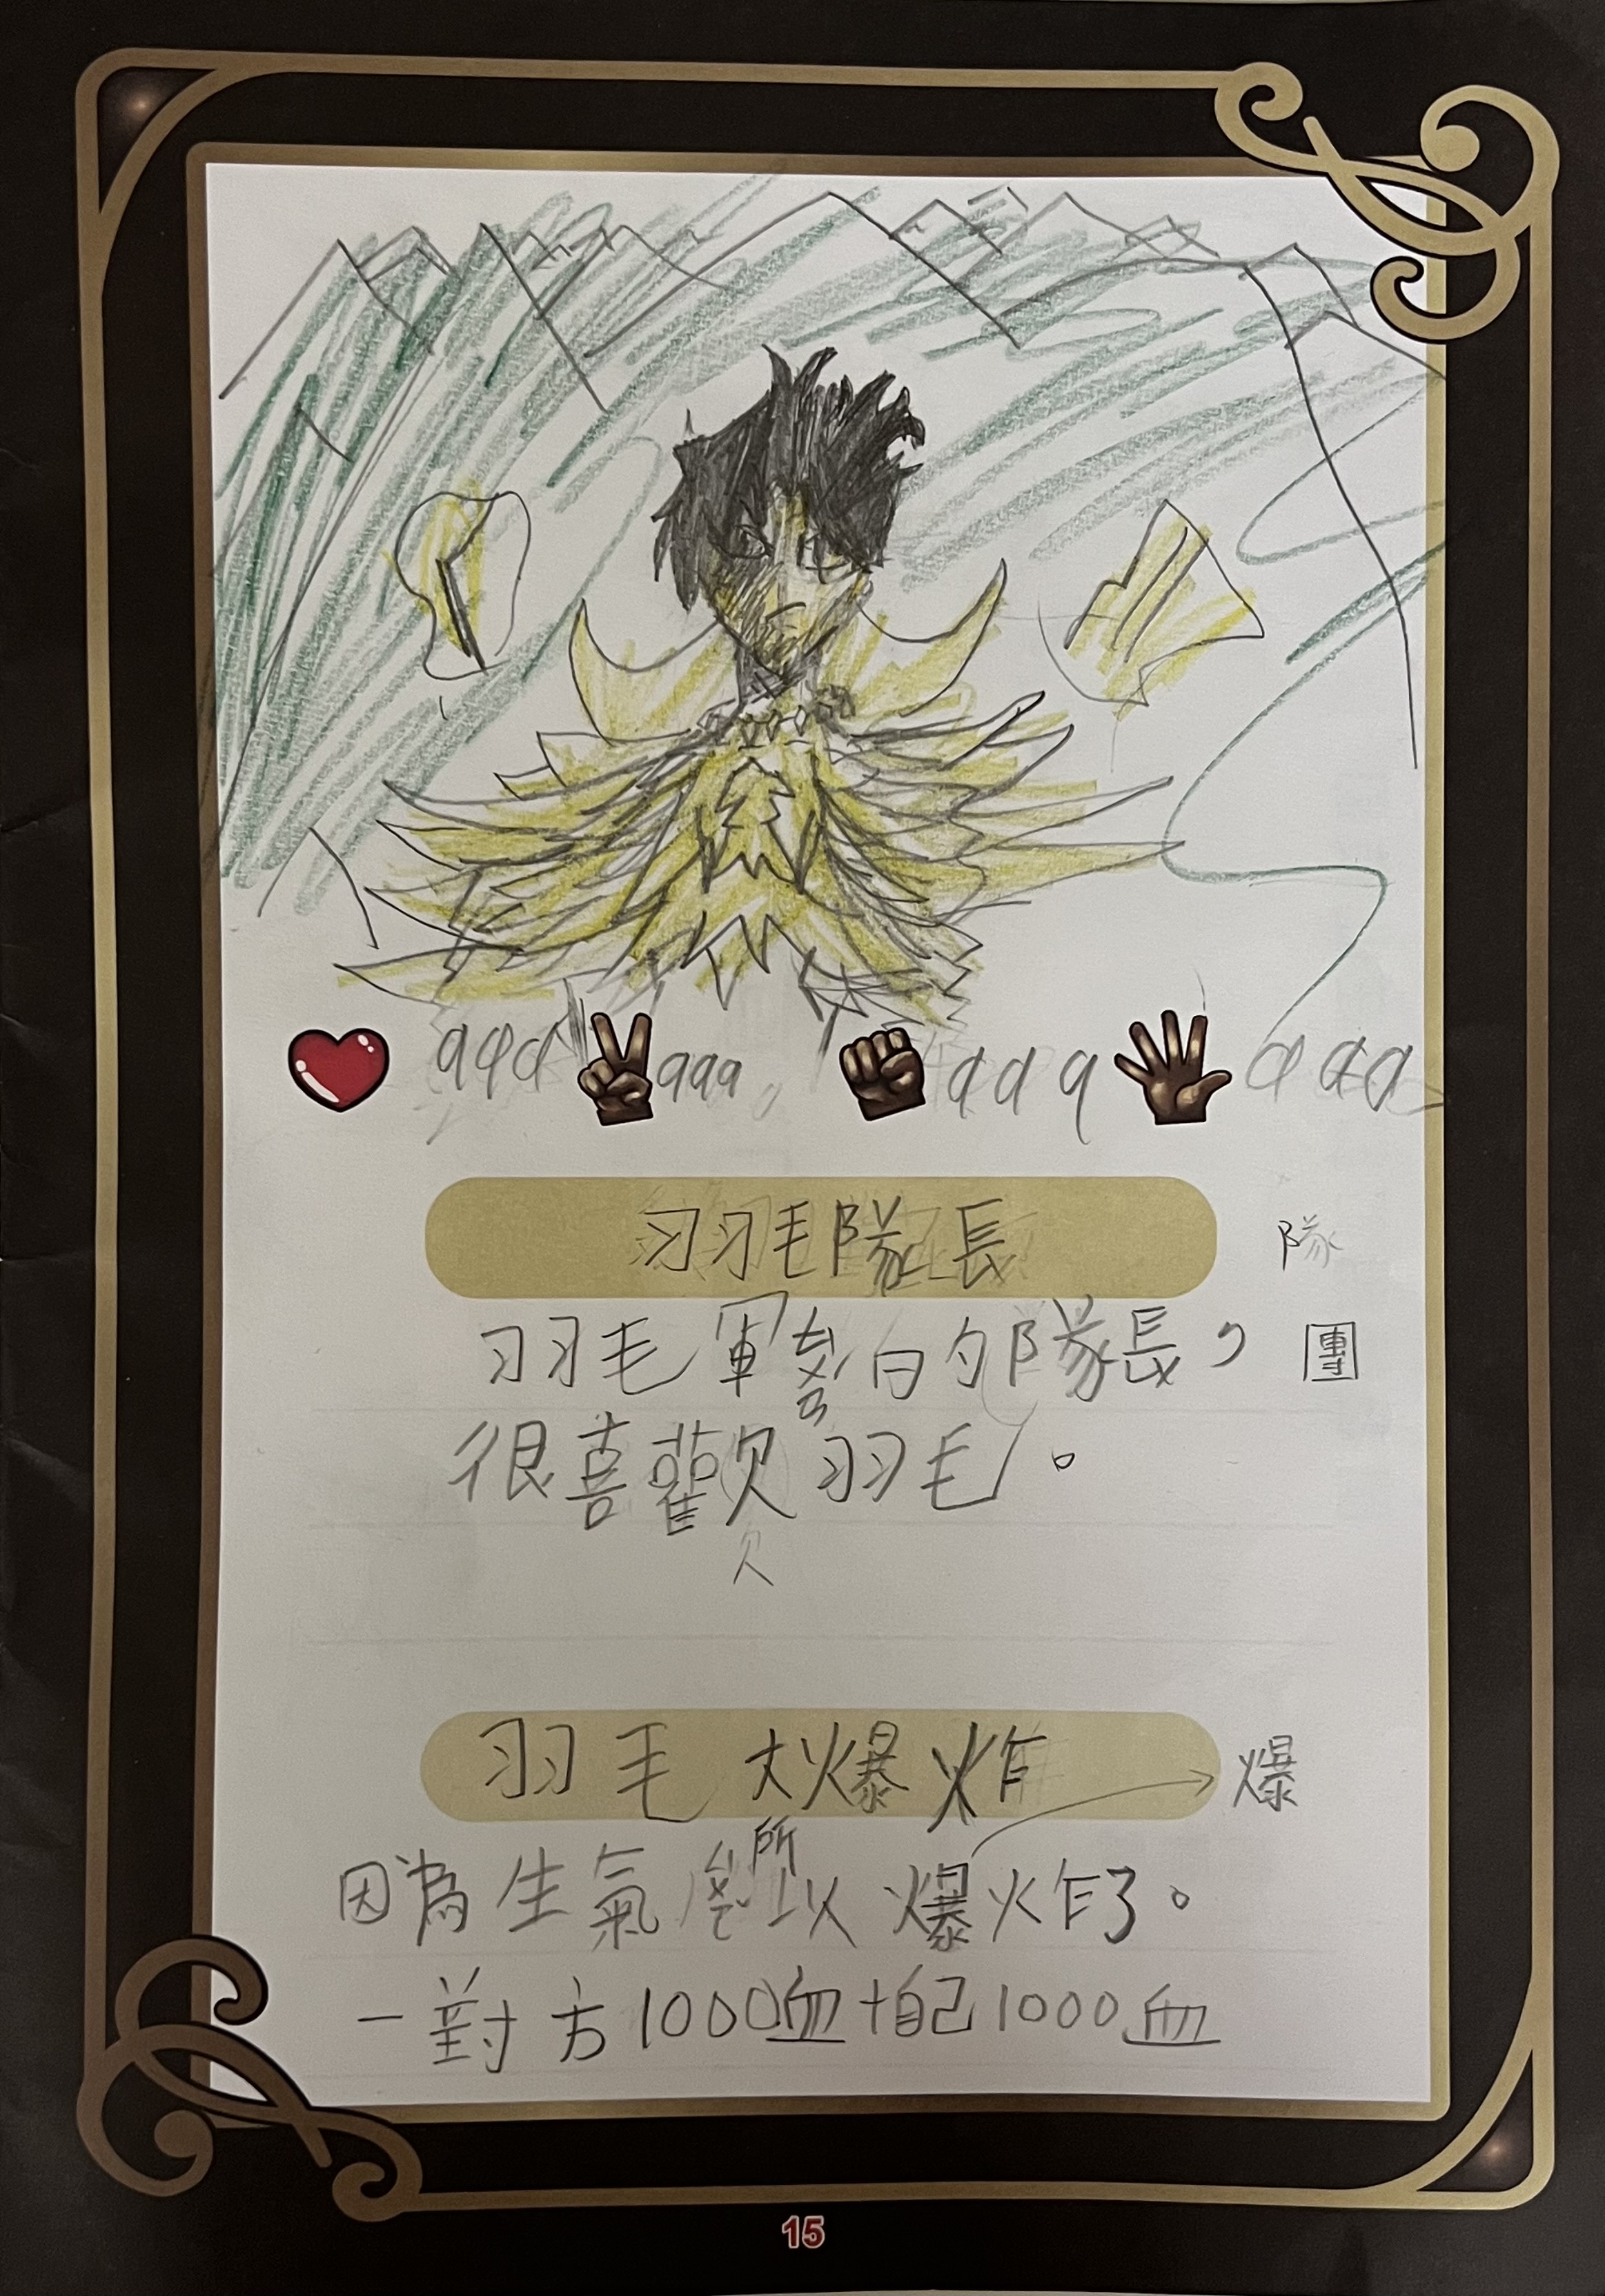 999 999 999 999
羽毛隊長 隊
羽毛軍的隊長, 團
很喜歡羽毛。
欠
羽毛大爆炸 爆
因為生氣所以爆炸了。
一對方1000血+自己1000血
15